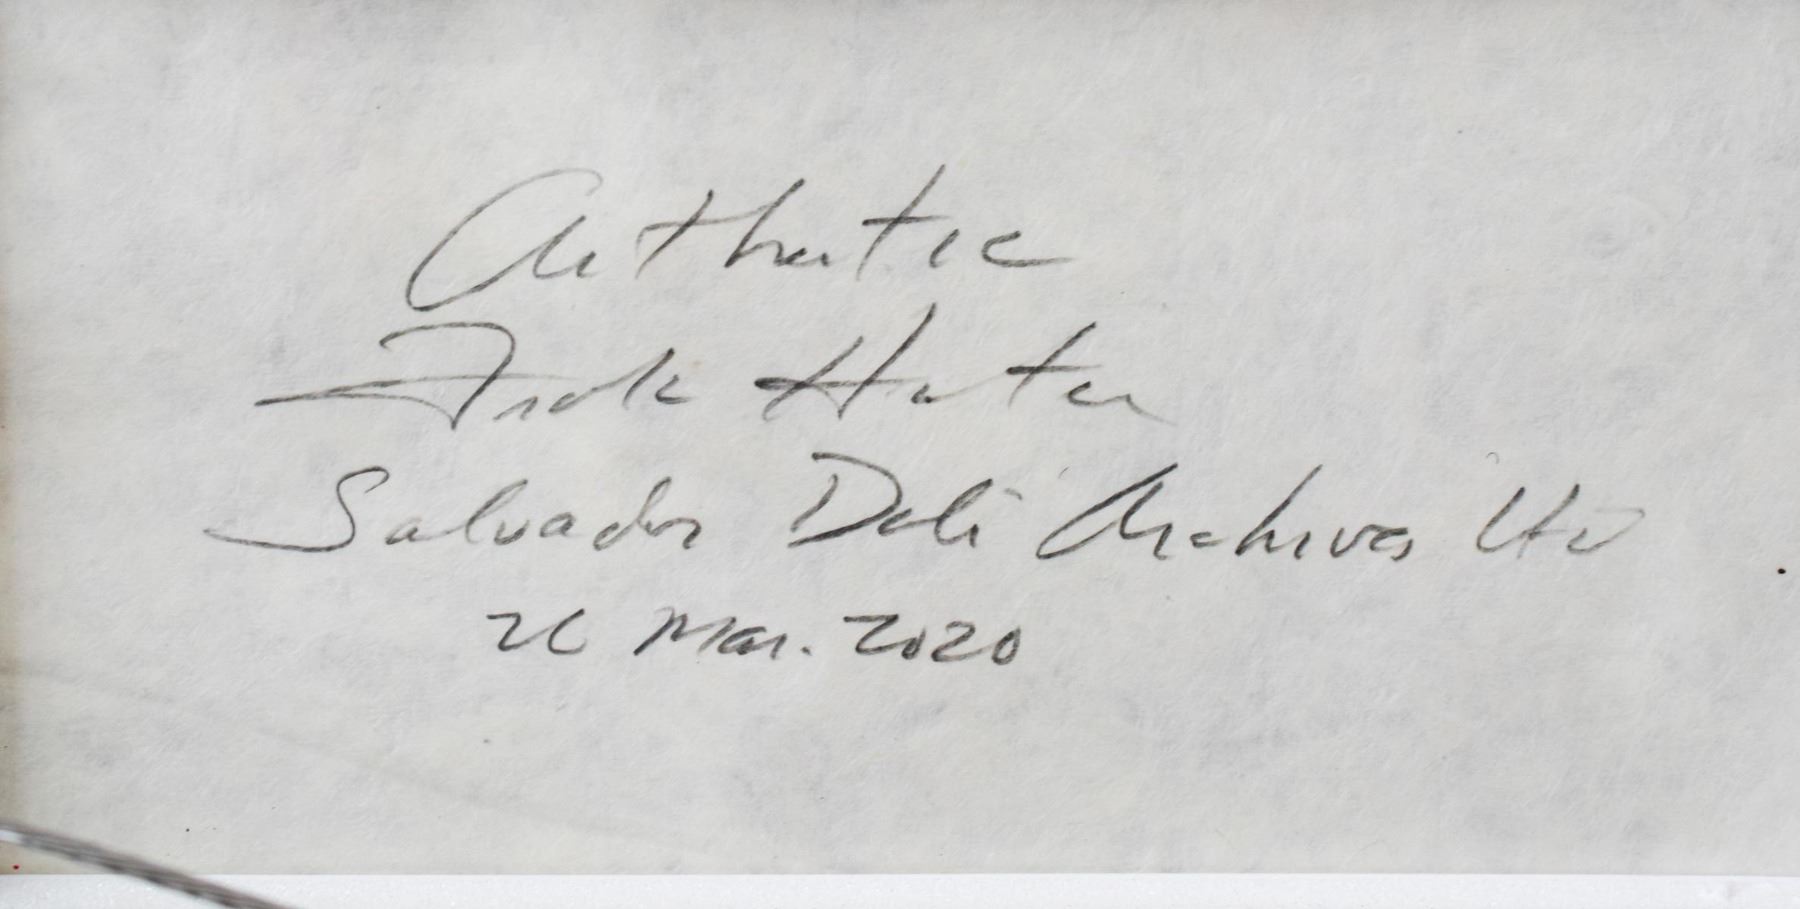 Authentic
Frank Hunter
Salvador Dali Archives Ltd
26 Mar. 2020